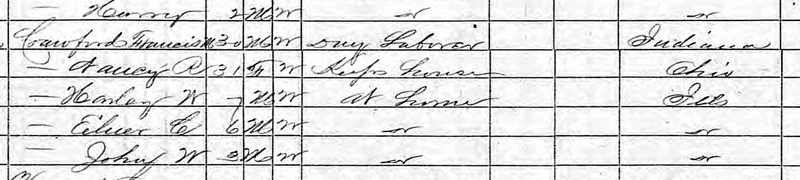 — Harry 2 M W "
Crawford Francis M 30 M W Day Laborer Indiana
— Nancy R 31 F W Keeps house Ohio
— Harley W 7 M W at home Ills
— Elmer C 6 M W " "
— John W 3 M W " "